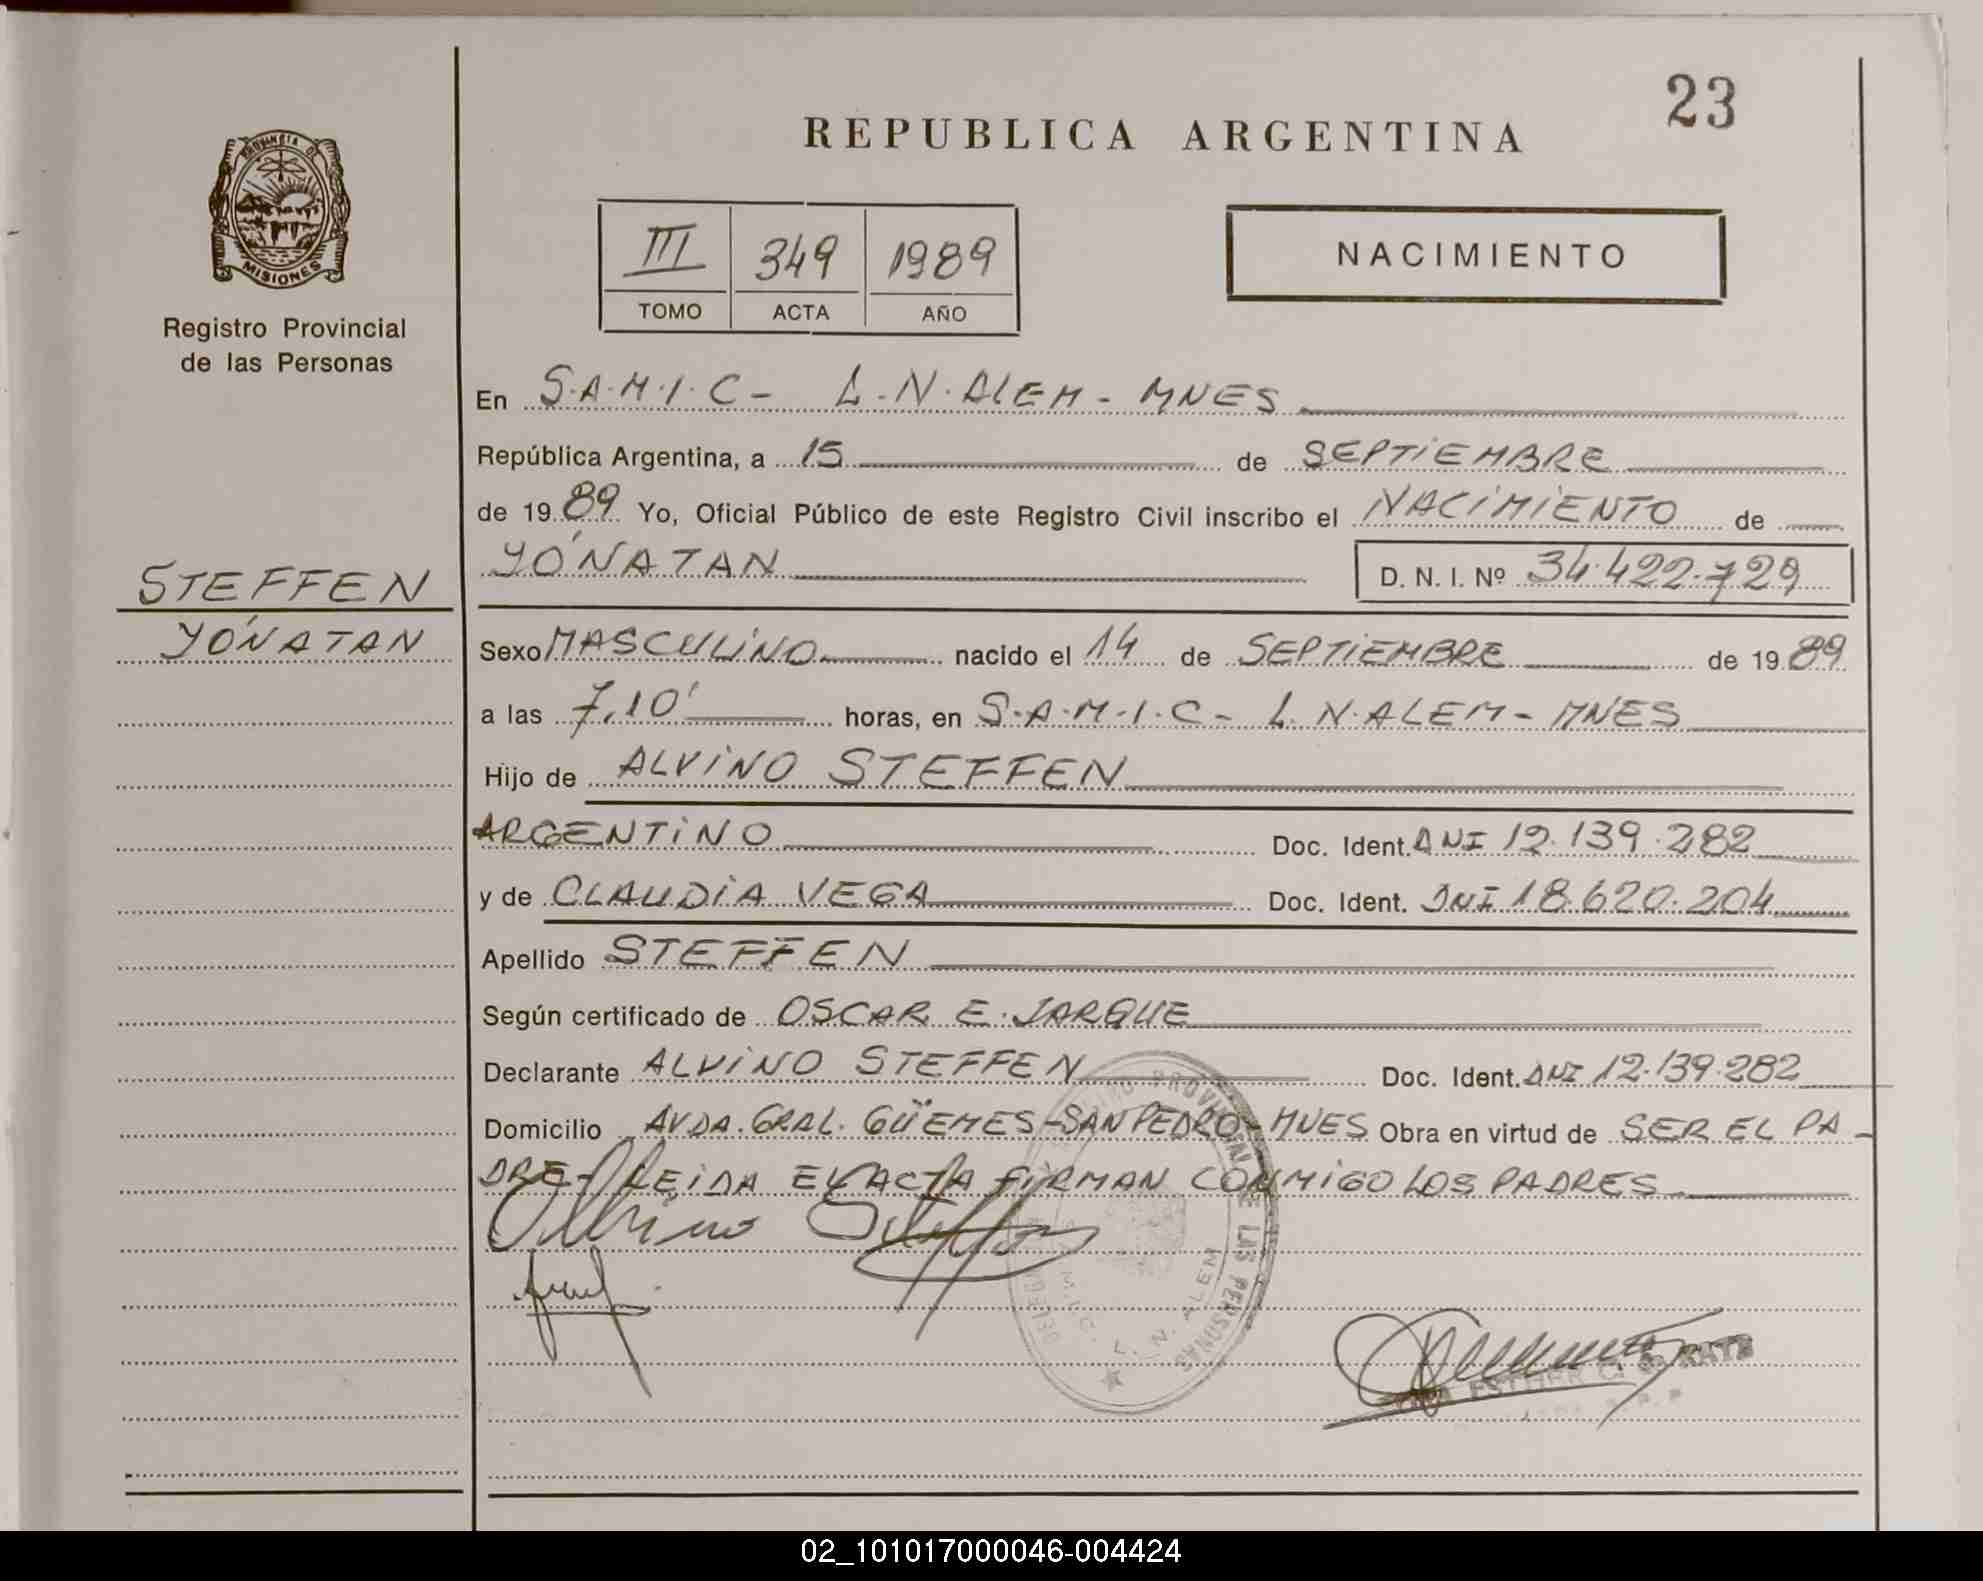 23
REPUBLICA ARGENTINA
PROVINCIA DE
MISIONES
Registro Provincial
de las Personas
III 349 1989
TOMO ACTA AÑO
NACIMIENTO
En S.A.M.I.C - L.N.ALEM - MNES
República Argentina, a 15 de SEPTIEMBRE
de 1989 Yo, Oficial Público de este Registro Civil inscribo el NACIMIENTO de
YÓNATAN D. N. I. Nº 34.422.729
STEFFEN
YÓNATAN
Sexo MASCULINO nacido el 14 de SEPTIEMBRE de 1989
a las 7,10' horas, en S.A.M.I.C - L.N.ALEM - MNES
Hijo de ALVINO STEFFEN
ARGENTINO Doc. Ident. DNI 12.139.282
y de CLAUDIA VEGA Doc. Ident. DNI 18.620.204
Apellido STEFFEN
Según certificado de OSCAR E. JARQUE
Declarante ALVINO STEFFEN Doc. Ident. DNI 12.139.282
Domicilio AVDA. GRAL. GÜEMES - SAN PEDRO - MNES Obra en virtud de SER EL PA-
DRE - LEIDA EL ACTA FIRMAN CONMIGO LOS PADRES
Alvino Steffen
PROVINCIAL DE LAS PERSONAS
L. N. ALEM
ESTHER C.
02_101017000046-004424